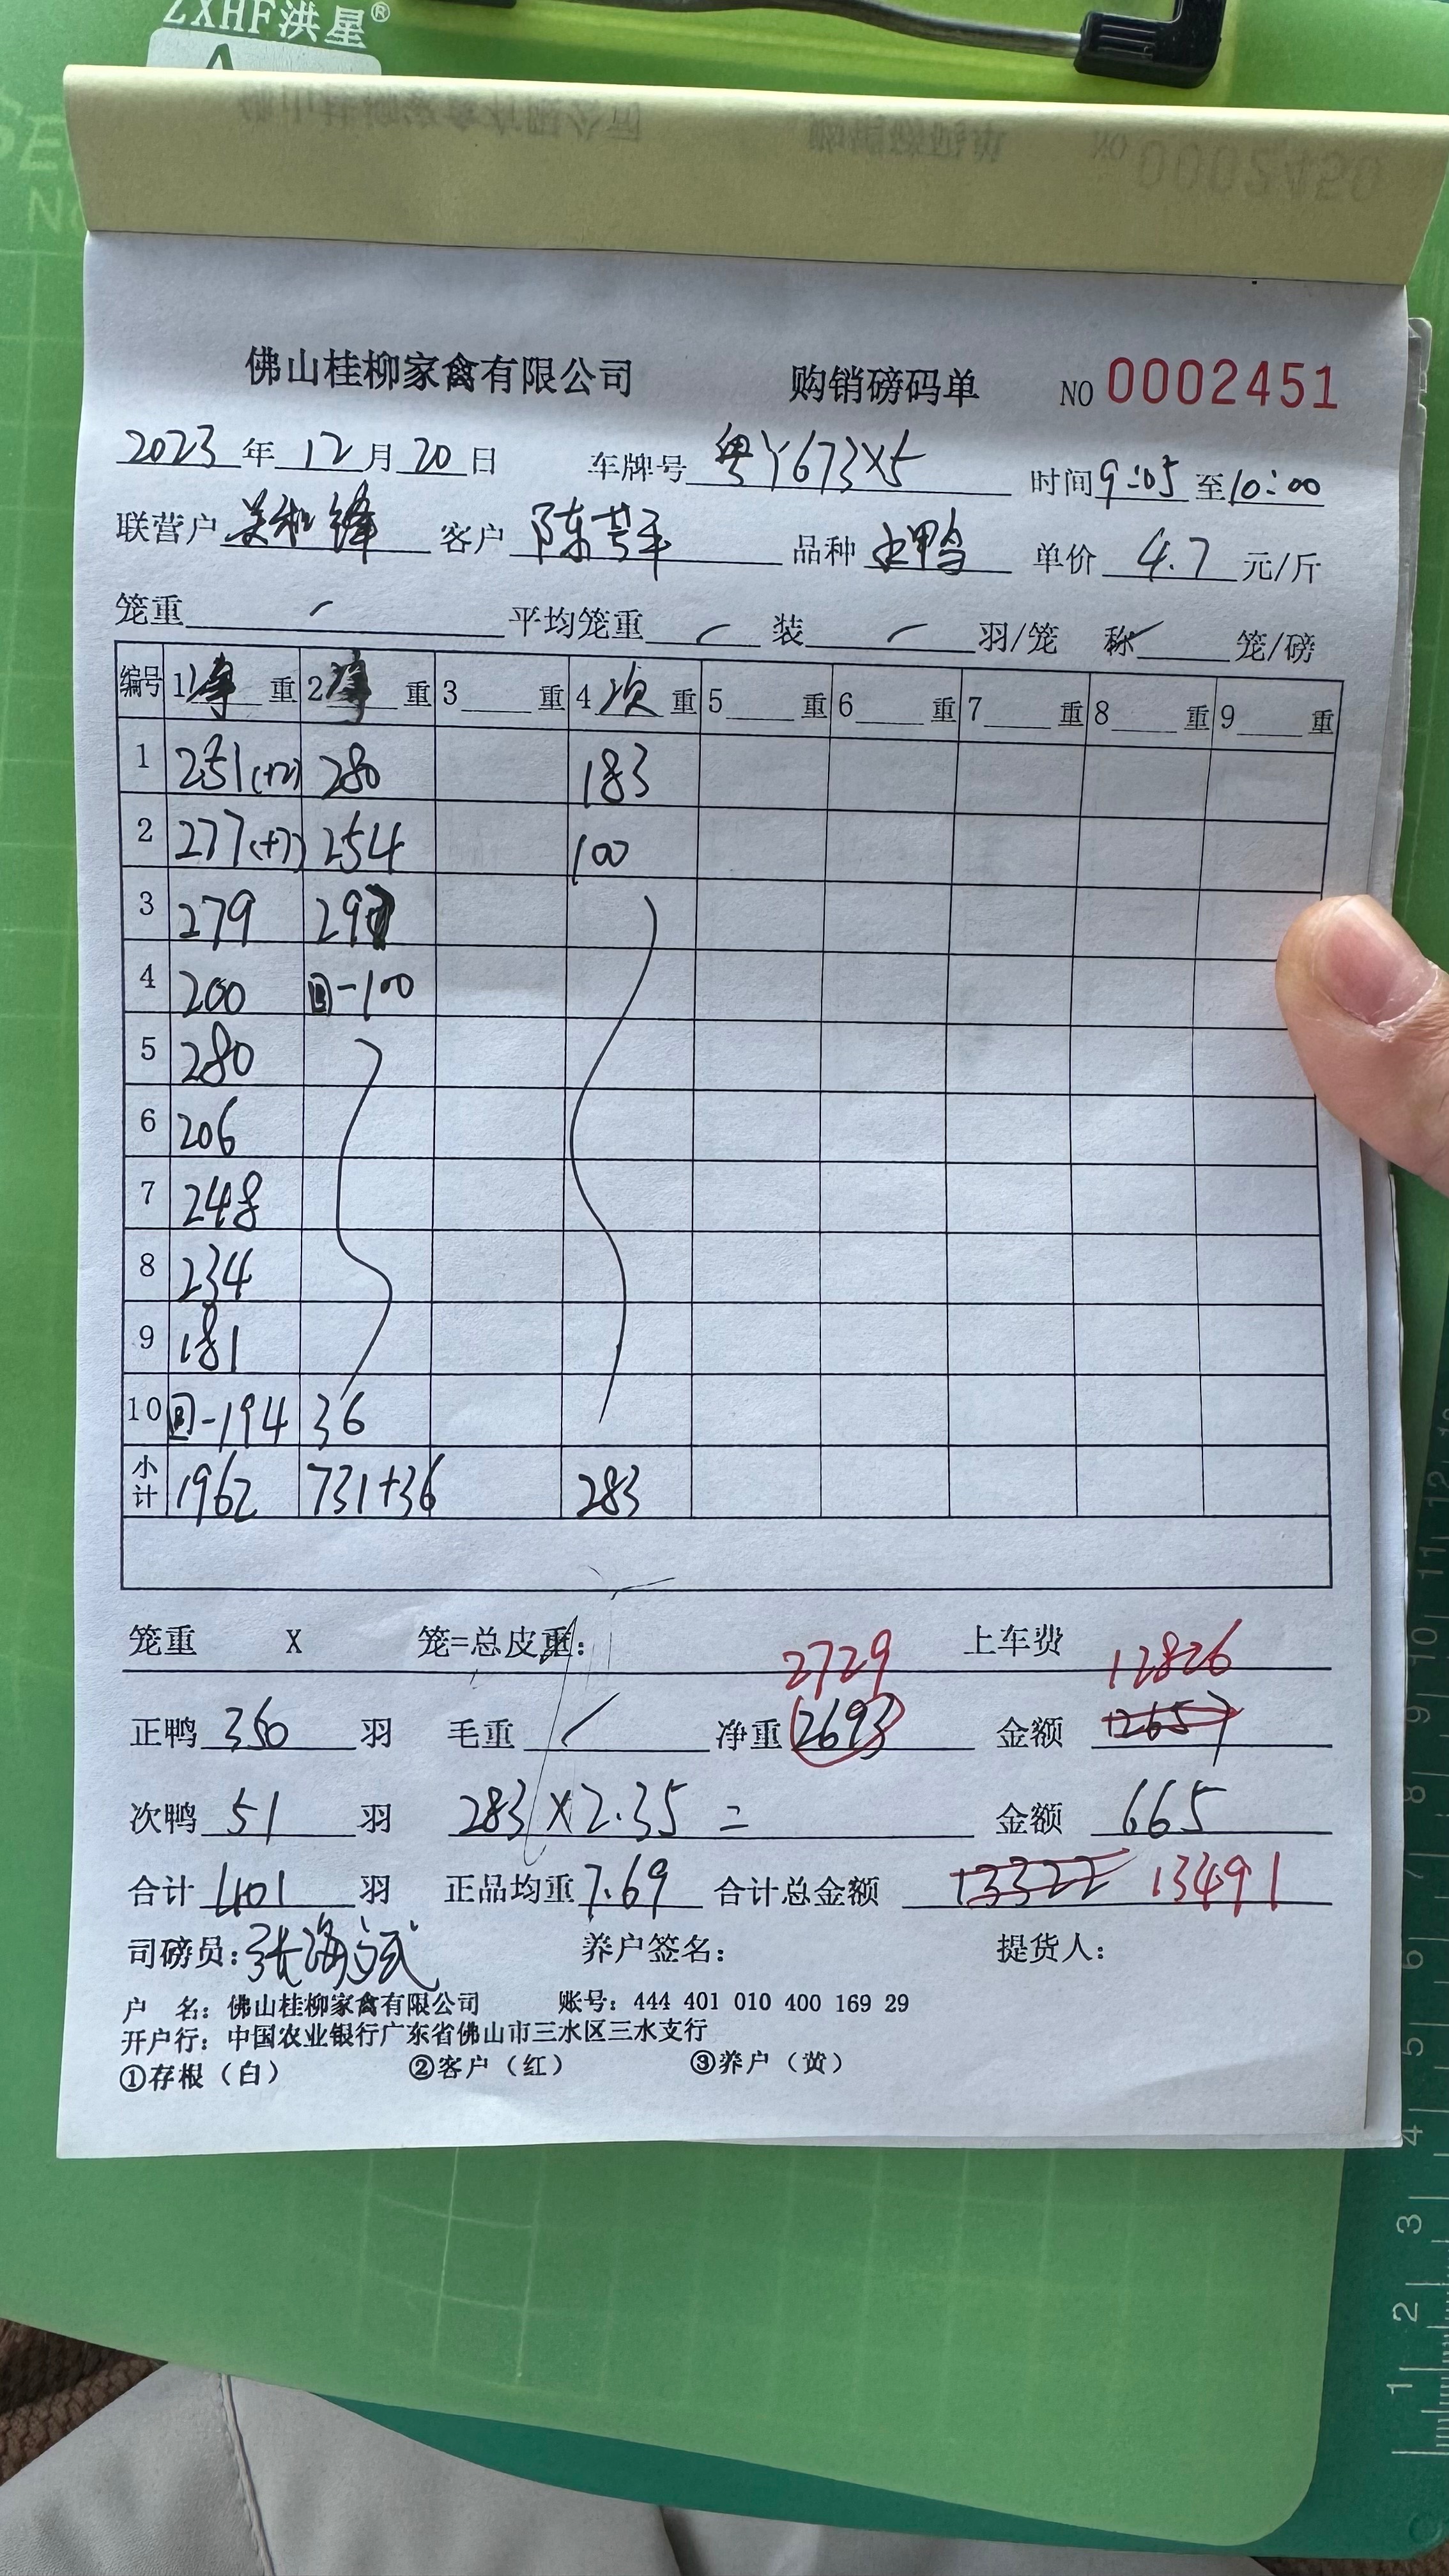 ZXHF洪星®
A
0002450
佛山桂柳家禽有限公司 购销磅码单 NO 0002451
2023 年 12 月 20 日 车牌号 粤Y673X5 时间 9:05 至 10:00
联营户 客户 陈 品种 水鸭 单价 4.7 元/斤
笼重 平均笼重 装 羽/笼 称 笼/磅
编号 1净 重 2净 重 3 重 4次 重 5 重 6 重 7 重 8 重 9 重
1 251(+2) 280 183
2 277(+7) 254 100
3 279 297
4 200 回-100
5 280
6 206
7 248
8 234
9 181
10 回-194 36
小计 1962 731+36 283
笼重 X 笼=总皮重: 上车费
2729 12826
正鸭 350 羽 毛重 净重 2693 金额 12657
次鸭 51 羽 283×2.35= 金额 665
合计 401 羽 正品均重 7.69 合计总金额 13322 13491
司磅员:张海斌 养户签名: 提货人:
户 名: 佛山桂柳家禽有限公司 账号: 444 401 010 400 169 29
开户行: 中国农业银行广东省佛山市三水区三水支行
①存根(白) ②客户(红) ③养户(黄)
12
11
10
9
8
7
6
5
4
3
2
1